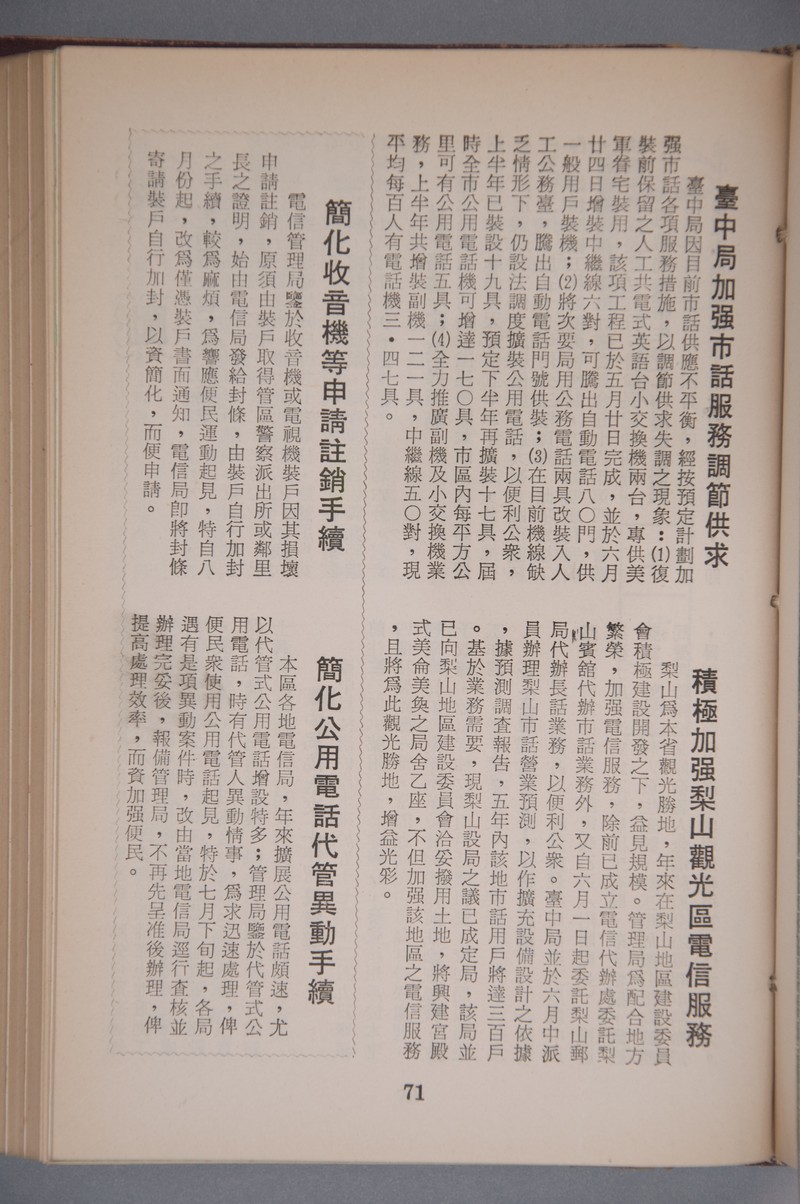 臺中局加强市話服務調節供求
臺中局因目前市話供應不平衡，經按預定計劃加
强市話各項服務措施，以調節供求失調之現象：⑴復
裝前保留之人工共電式英語台小交換機兩台，專供美
軍眷宅裝用，該項工程已於五月廿日完成，並於六月
廿四日增裝中繼線六對，可騰出自動電話八〇門，供
一般用戶裝機；⑵將次要局用公務電話兩具改裝入人
工公務臺，騰出自動電話門號供裝；⑶在目前機線缺
乏情形下，仍設法調度擴裝公用電話，以便利公衆，
上半年已裝設十九具，預定下半年再擴裝十七具，屆
時全市公用電話機可增達一七〇具，市區內每平方公
里可有公用電話五具；⑷全力推廣副機及小交換機業
務，上半年共增裝副機一二一具，中繼線五〇對，現
平均每百人有電話機三・四七具。
積極加强梨山觀光區電信服務
梨山爲本省觀光勝地，年來在梨山地區建設委員
會積極建設開發之下，益見規模。管理局爲配合地方
繁榮，加强電信服務，除前已成立電信代辦處委託梨
山賓舘代辦市話業務外，又自六月一日起委託梨山郵
局代辦長話業務，以便利公衆。臺中局並於六月中派
員辦理梨山市話營業預測，以作擴充設備設計之依據
，據預測調查報告，五年內該地市話用戶將達三百戶
。基於業務需要，現梨山設局之議已成定局，該局並
已向梨山地區建設委員會洽妥撥用土地，將興建宮殿
式美侖美奐之局舍乙座，不但加强該地區之電信服務
，且將爲此觀光勝地，增益光彩。
簡化收音機等申請註銷手續
電信管理局鑒於收音機或電視機裝戶因其損壞
申請註銷，原須由裝戶取得管區警察派出所或鄰里
長之證明，始由電信局發給封條，由裝戶自行加封
之手續，較爲麻煩，爲響應便民運動起見，特自八
月份起，改爲僅憑裝戶書面通知，電信局卽將封條
寄請裝戶自行加封，以資簡化，而便申請。
簡化公用電話代管異動手續
本區各地電信局，年來擴展公用電話頗速，尤
以代管式公用電話增設特多；管理局鑒於代管式公
用電話，時有代管人異動情事，爲求迅速處理，俾
便民衆使用公用電話起見，特於七月下旬起，各局
遇有是項異動案件時，改由當地電信局逕行查核並
辦理完妥後，報備管理局，不再先呈准後辦理，俾
提高處理效率，而資加强便民。
71